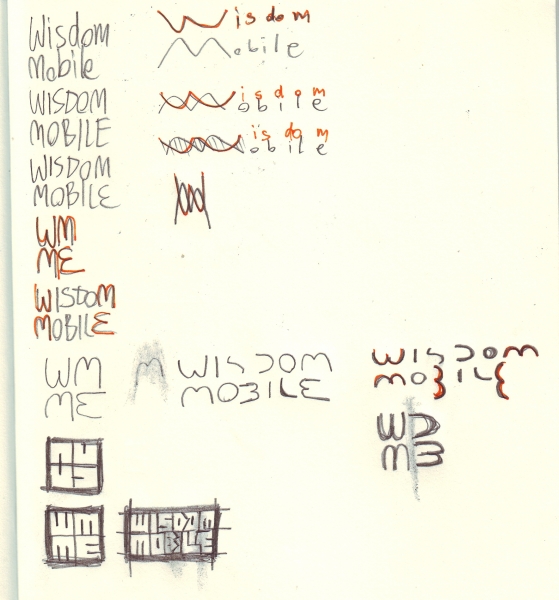 Wisdom
Mobile
WISDOM
MOBILE
WISDOM
MOBILE
WM
ME
WISDOM
MOBILE
WM
ME
Wisdom
Mobile
isdom
obile
isdom
obile
M WISDOM
MOBILE
WISDOM
MOBILE
WD
MB
WM
ME
WISDOM
MOBILE